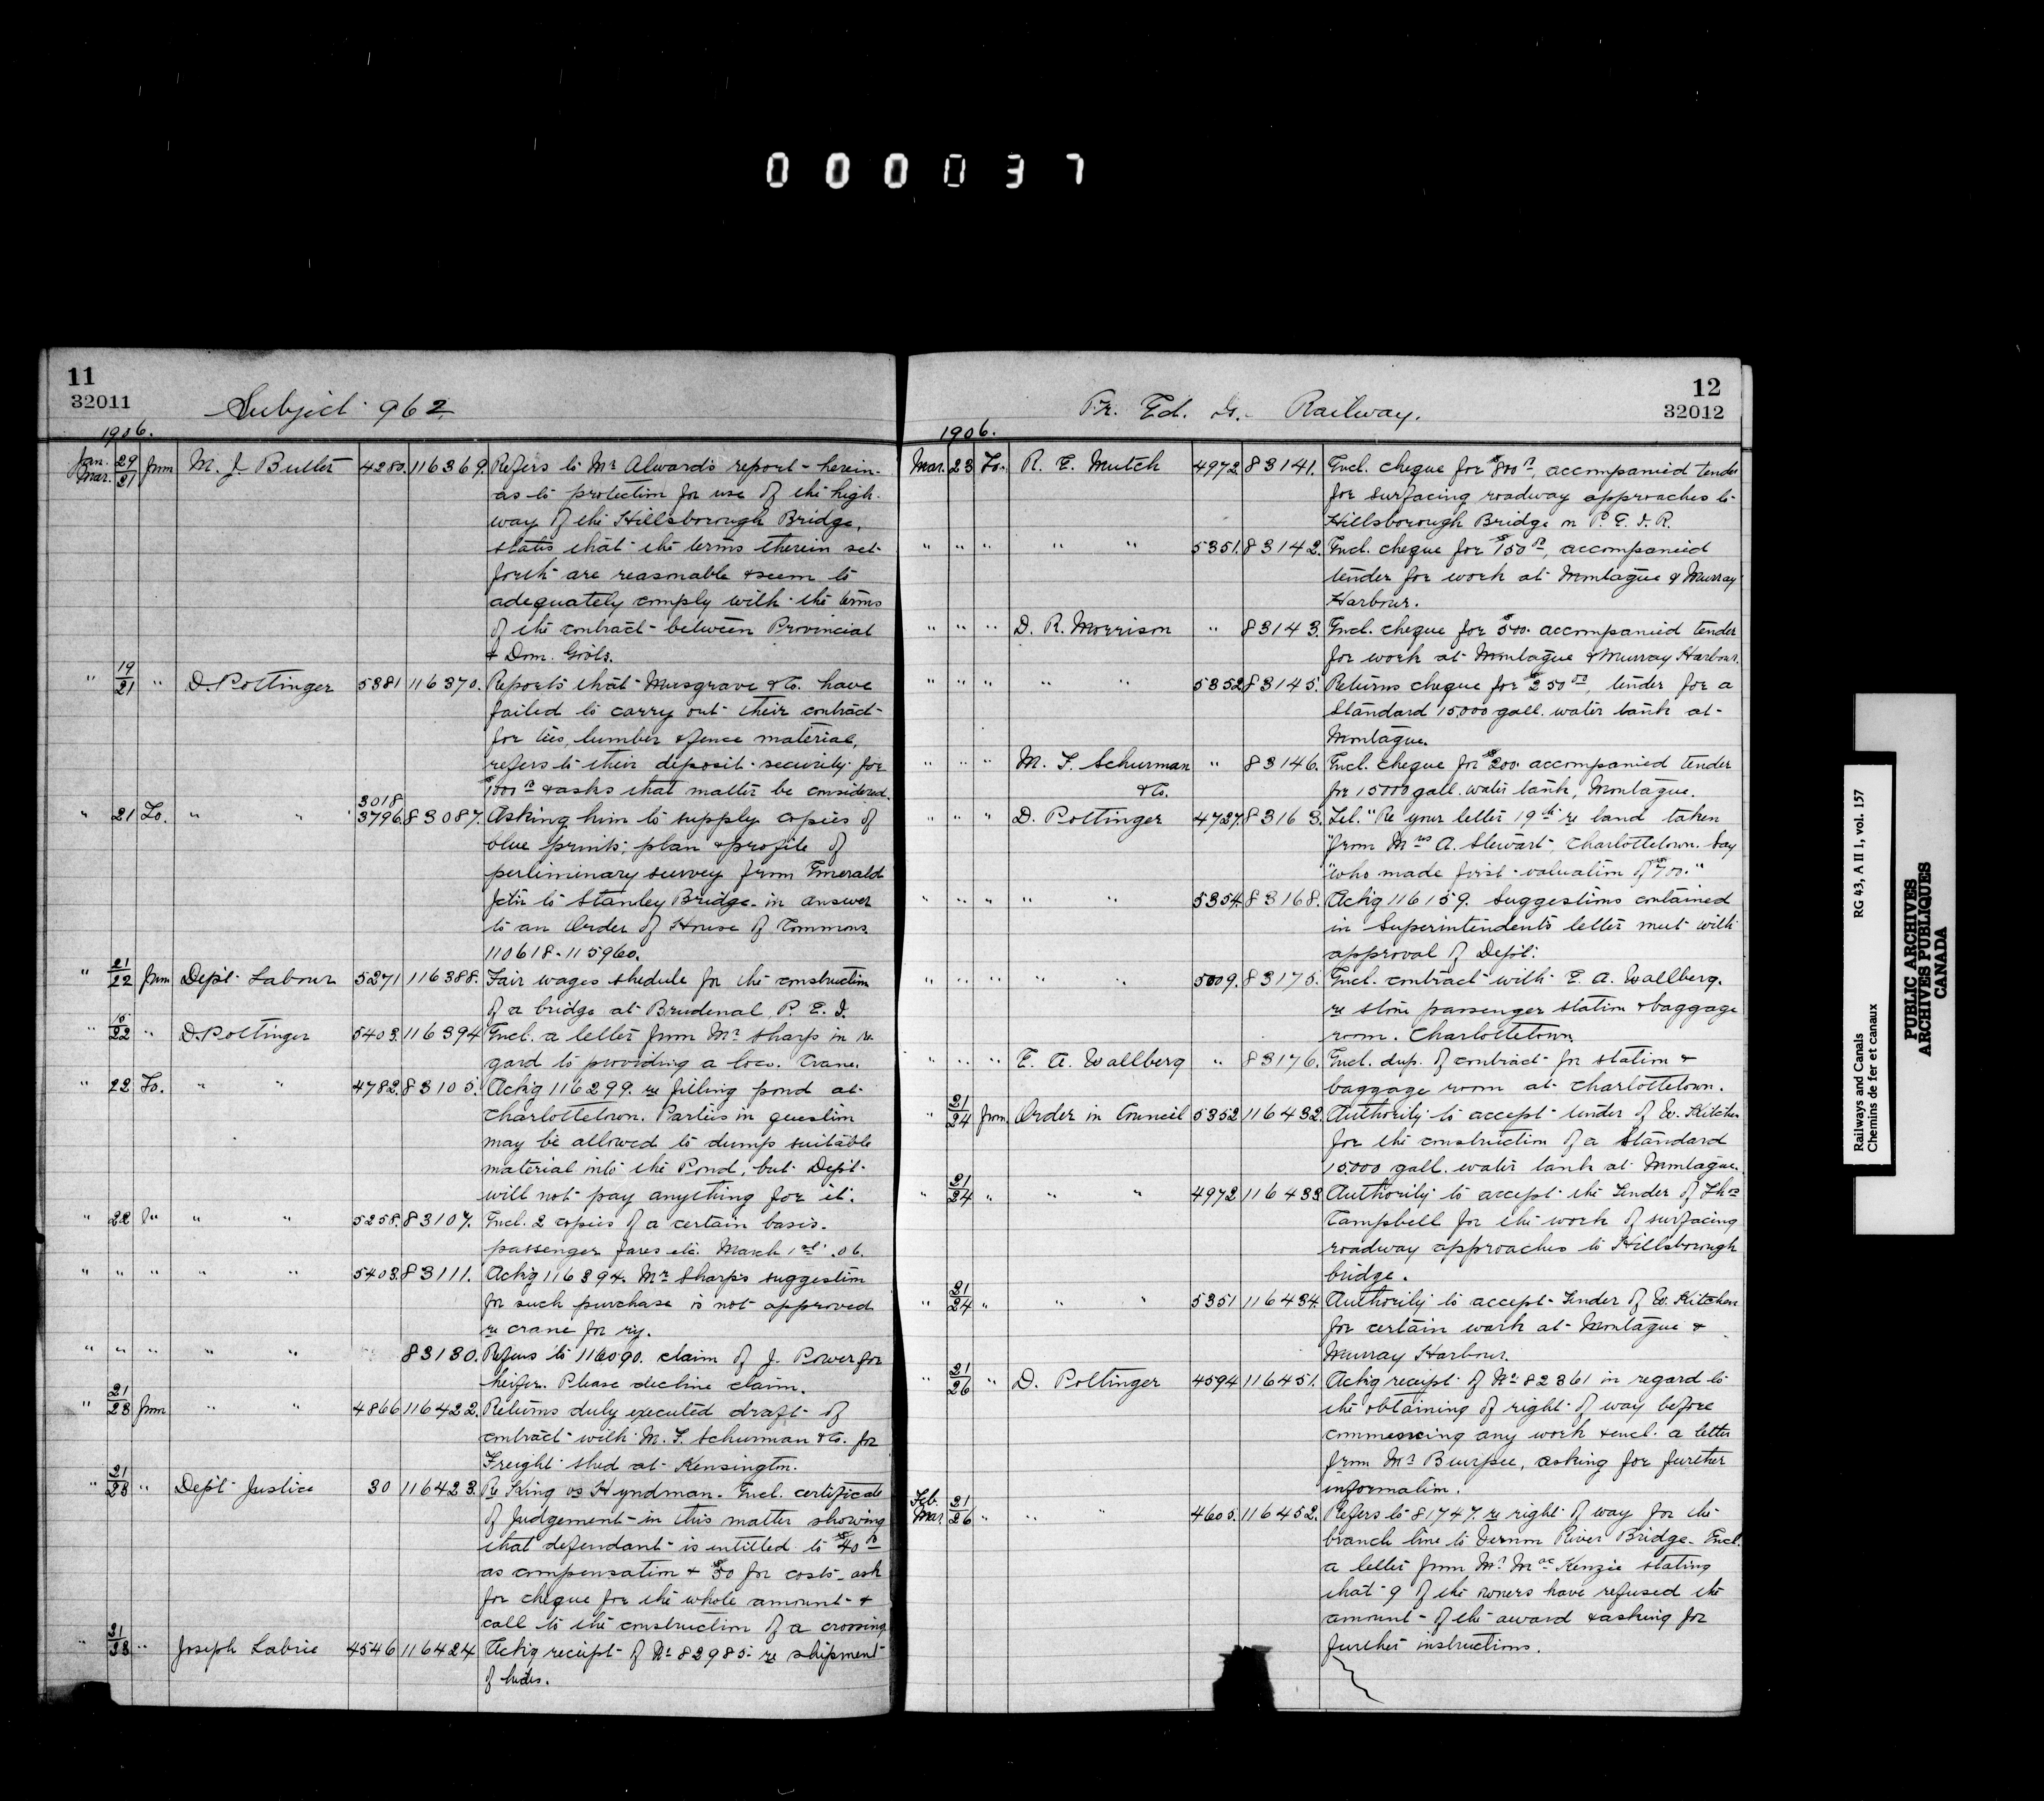 000037
11
32011
Subject 962.
1906.
Jan. 29 Mar. 21 from M. J. Butler 4280. 116369. Refers to Mr Alward's report herein
as to protection for use of the high-
way of the Hillsborough Bridge,
states that the terms therein set
forth are reasonable & seem to
adequately comply with the terms
of the contract between Provincial
& Dom. Govts.
" 19/21 " D. Pottinger 5381 116370. Reports that Musgrave & Co. have
failed to carry out their contract
for ties, lumber & fence material,
refers to their deposit security for
$1000 00 & asks that matter be considered.
" 21 To. " " 3018 3796. 83087. Asking him to supply copies of
blue prints; plan & profile of
perliminary survey from Emerald
Jctn to Stanley Bridge in answer
to an Order of House of Commons.
110618 - 115960.
" 21/22 from Dept Labour 5271 116388. Fair wages shedule for the construction
of a bridge at Brudenal P. E. I.
" 15/22 " D. Pottinger 5403. 116394 Encl. a letter from Mr Sharp in re-
gard to providing a loco. Crane.
" 22 To. " " 4782. 83105. Ackg 116299. re filling pond at
Charlottetown. Parties in question
may be allowed to dump suitable
material into the Pond, but Dept
will not pay anything for it.
" 22 " " " 5258. 83107. Encl. 2 copies of a certain basis.
passenger fares etc. March 1st. 06.
" " " " " 5403. 83111. Ackg 116394. Mr Sharp's suggestion
for such purchase is not approved
re crane for ry.
" " " " " 83130. Refers to 116090. claim of J. Power for
heifer. Please decline claim.
" 21/23 from " " 4866 116422. Returns duly executed draft of
contract with M. F. Schurman & Co. for
Freight shed at Kensington.
" 21/23 " Dept Justice 30 116423. Re King vs Hyndman. Encl. certificate
of Judgement in this matter showing
that defendant is entitled to $40 00
as compensation & $30 for costs - ask
for cheque for the whole amount &
call to the construction of a crossing
" 21/23 " Joseph Labrie 4546 116424 Ackg receipt of No 82985 re shipment
of hides.
12
32012
Pr. Ed. Is. Railway.
1906.
Mar. 23 To. R. E. Mutch 4972. 83141. Encl. cheque for $800 00, accompanied tender
for surfacing roadway approaches to
Hillsborough Bridge on P. E. I. R.
" " " " " 5351. 83142. Encl. cheque for $150 00, accompanied
tender for work at Montague & Murray
Harbour.
" " " D. R. Morrison " 83143. Encl. cheque for $500. accompanied tender
for work at Montague & Murray Harbour.
" " " " " 5352. 83145. Returns cheque for $250 00, tender for a
Standard 15,000 gall. water tank at
Montague.
" " " M. F. Schurman & Co. " 83146. Encl. cheque for $200. accompanied tender
for 15000 gall. water tank, Montague.
" " " D. Pottinger 4727. 83163. Tel. "Re your letter 19th re land taken
"from Mrs A. Stewart, Charlottetown. Say
"who made first valuation of $700."
" " " " " 5354. 83168. Ackg 116159. Suggestions contained
in Superintendents letter meet with
approval of Dept.
" " " " " 5009. 83175. Encl. contract with E. A. Wallberg.
re stone passenger station & baggage
room. Charlottetown.
" " " E. A. Wallberg " 83176. Encl. dup. of contract for station &
baggage room at Charlottetown.
" 21/24 from Order in Council 5352 116432. Authority to accept tender of W. Kitchen
for the construction of a Standard
15,000 gall. water tank at Montague.
" 21/24 " " " 4972 116433 Authority to accept the Tender of Thos
Campbell for the work of surfacing
roadway approaches to Hillsborough
bridge.
" 21/24 " " " 5351 116434. Authority to accept Tender of W. Kitchen
for certain work at Montague &
Murray Harbour.
" 21/26 " D. Pottinger 4594 116451. Ackg receipt of No 82361 in regard to
the obtaining of right of way before
commencing any work & encl. a letter
from Mr Burpee, asking for further
information.
Feb. 21 Mar. 26 " " " 4605. 116452. Refers to 81747. re right of way for the
branch line to Vernon River Bridge. Encl.
a letter from Mr MacKenzie stating
that 9 of the owners have refused the
amount of the award & asking for
further instructions.
Railways and Canals RG 43, A II 1, vol. 157
Chemins de fer et canaux
PUBLIC ARCHIVES
ARCHIVES PUBLIQUES
CANADA